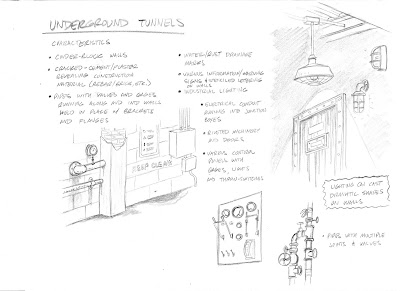 UNDERGROUND TUNNELS
CHARACTERISTICS
• CINDER-BLOCK WALLS
• CRACKED-CEMENT/PLASTER
REVEALING CONSTRUCTION
MATERIAL (REBAR/BRICK, ETC)
• PIPES WITH VALVES AND GAGES
RUNNING ALONG AND INTO WALLS
HELD IN PLACE W/ BRACKETS
AND FLANGES
KEEP CLEAR
• WATER/RUST DRAINAGE
MARKS
• VARIOUS INFORMATION/WARNING
SIGNS & STENCILED LETTERING
ON WALLS
• INDUSTRIAL LIGHTING
• ELECTRICAL CONDUIT
RUNNING INTO JUNCTION
BOXES
• RIVETED MACHINERY
AND DOORS
• VARIOUS CONTROL
PANELS WITH
GAGES, LIGHTS
AND THROW-SWITCHES
LIGHTING TO CAST
DRAMATIC SHAPES
ON WALLS
• PIPES WITH MULTIPLE
JOINTS & VALVES